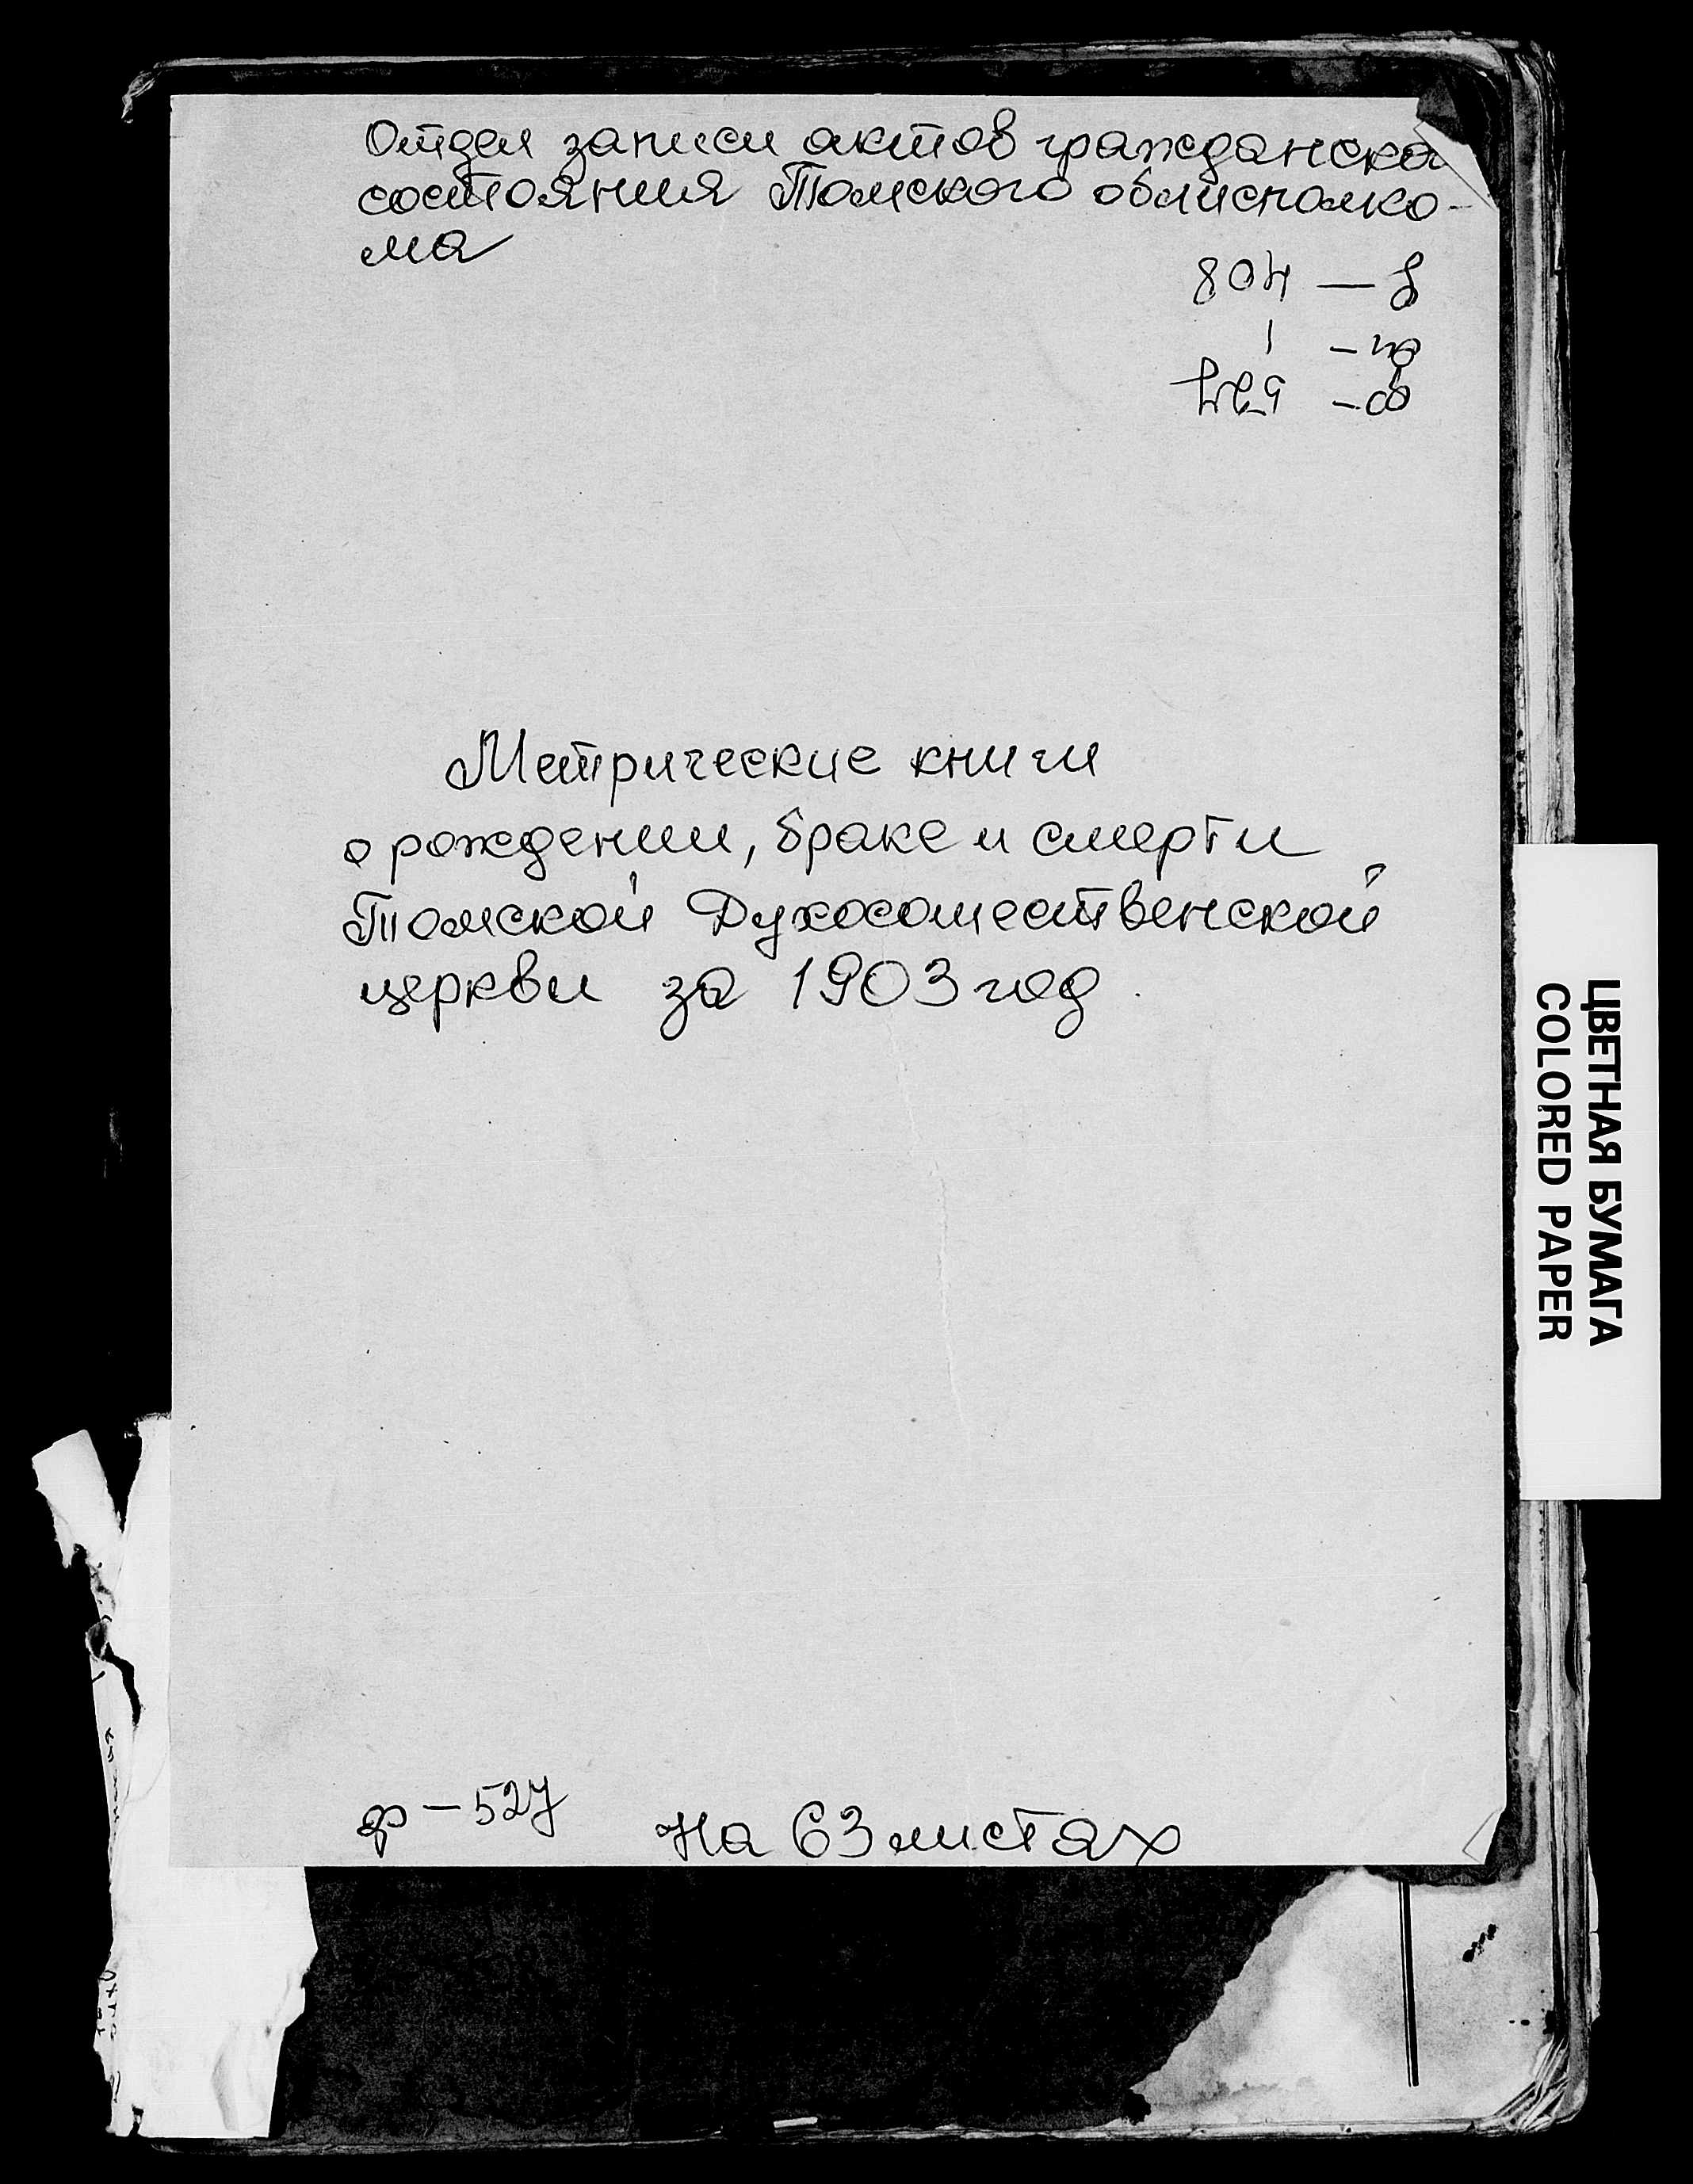 Отдел записи актов гражданска
состояния Томского облисполко-
ма
ф - 527
оп - 1
д — 408
Метрические книги
о рождении, браке и смерти
Томской Духосошественской
церкви за 1903 год.
ф - 527
На 63 листах
ЦВЕТНАЯ БУМАГА
COLORED PAPER